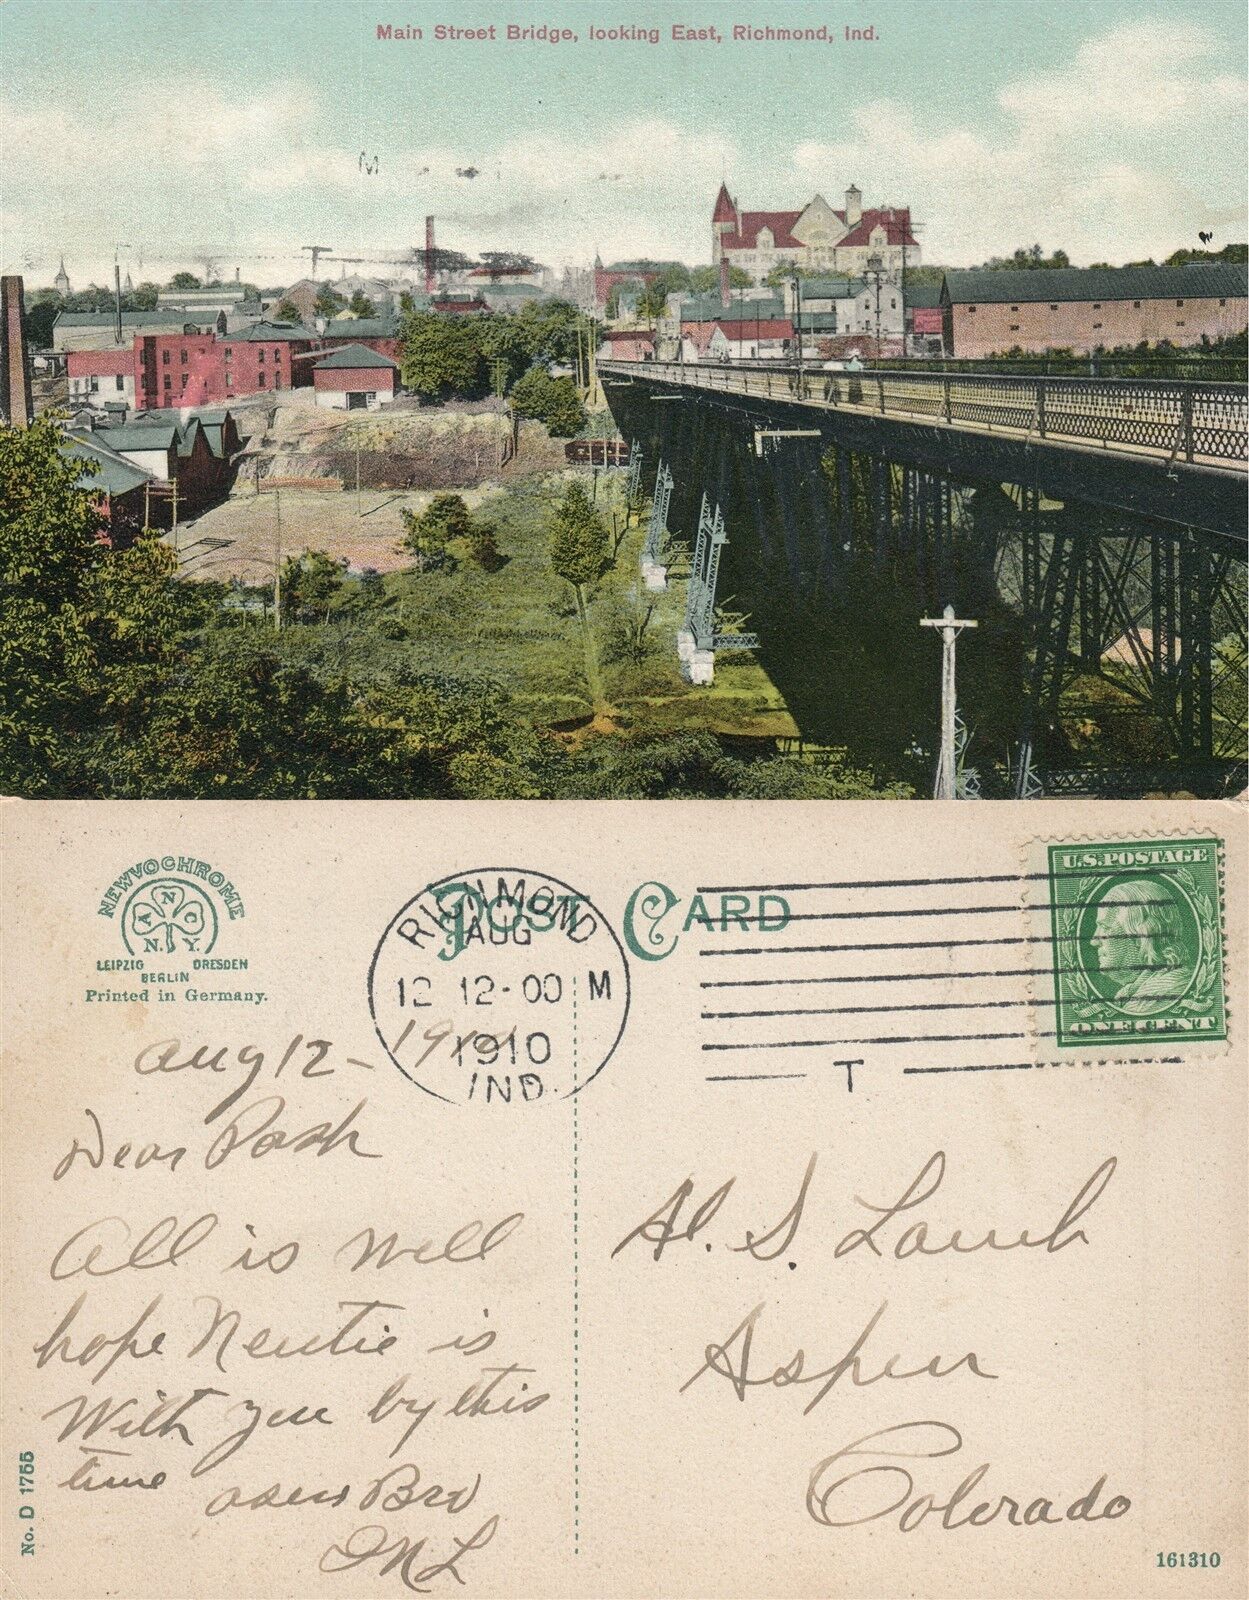 Main Street Bridge, looking East, Richmond, Ind.
NEWVOCHROME
A N C
N. Y.
LEIPZIG DRESDEN
BERLIN
Printed in Germany.
POST CARD
RICHMOND
AUG
12 12-00 M
1910
IND.
T
U.S. POSTAGE
ONE CENT
Aug 12 - 1910
Dear Pash
All is well
hope Neutie is
With you by this
time Bro
M L
S. Lamb
Aspen
Colorado
No. D 1755
161310